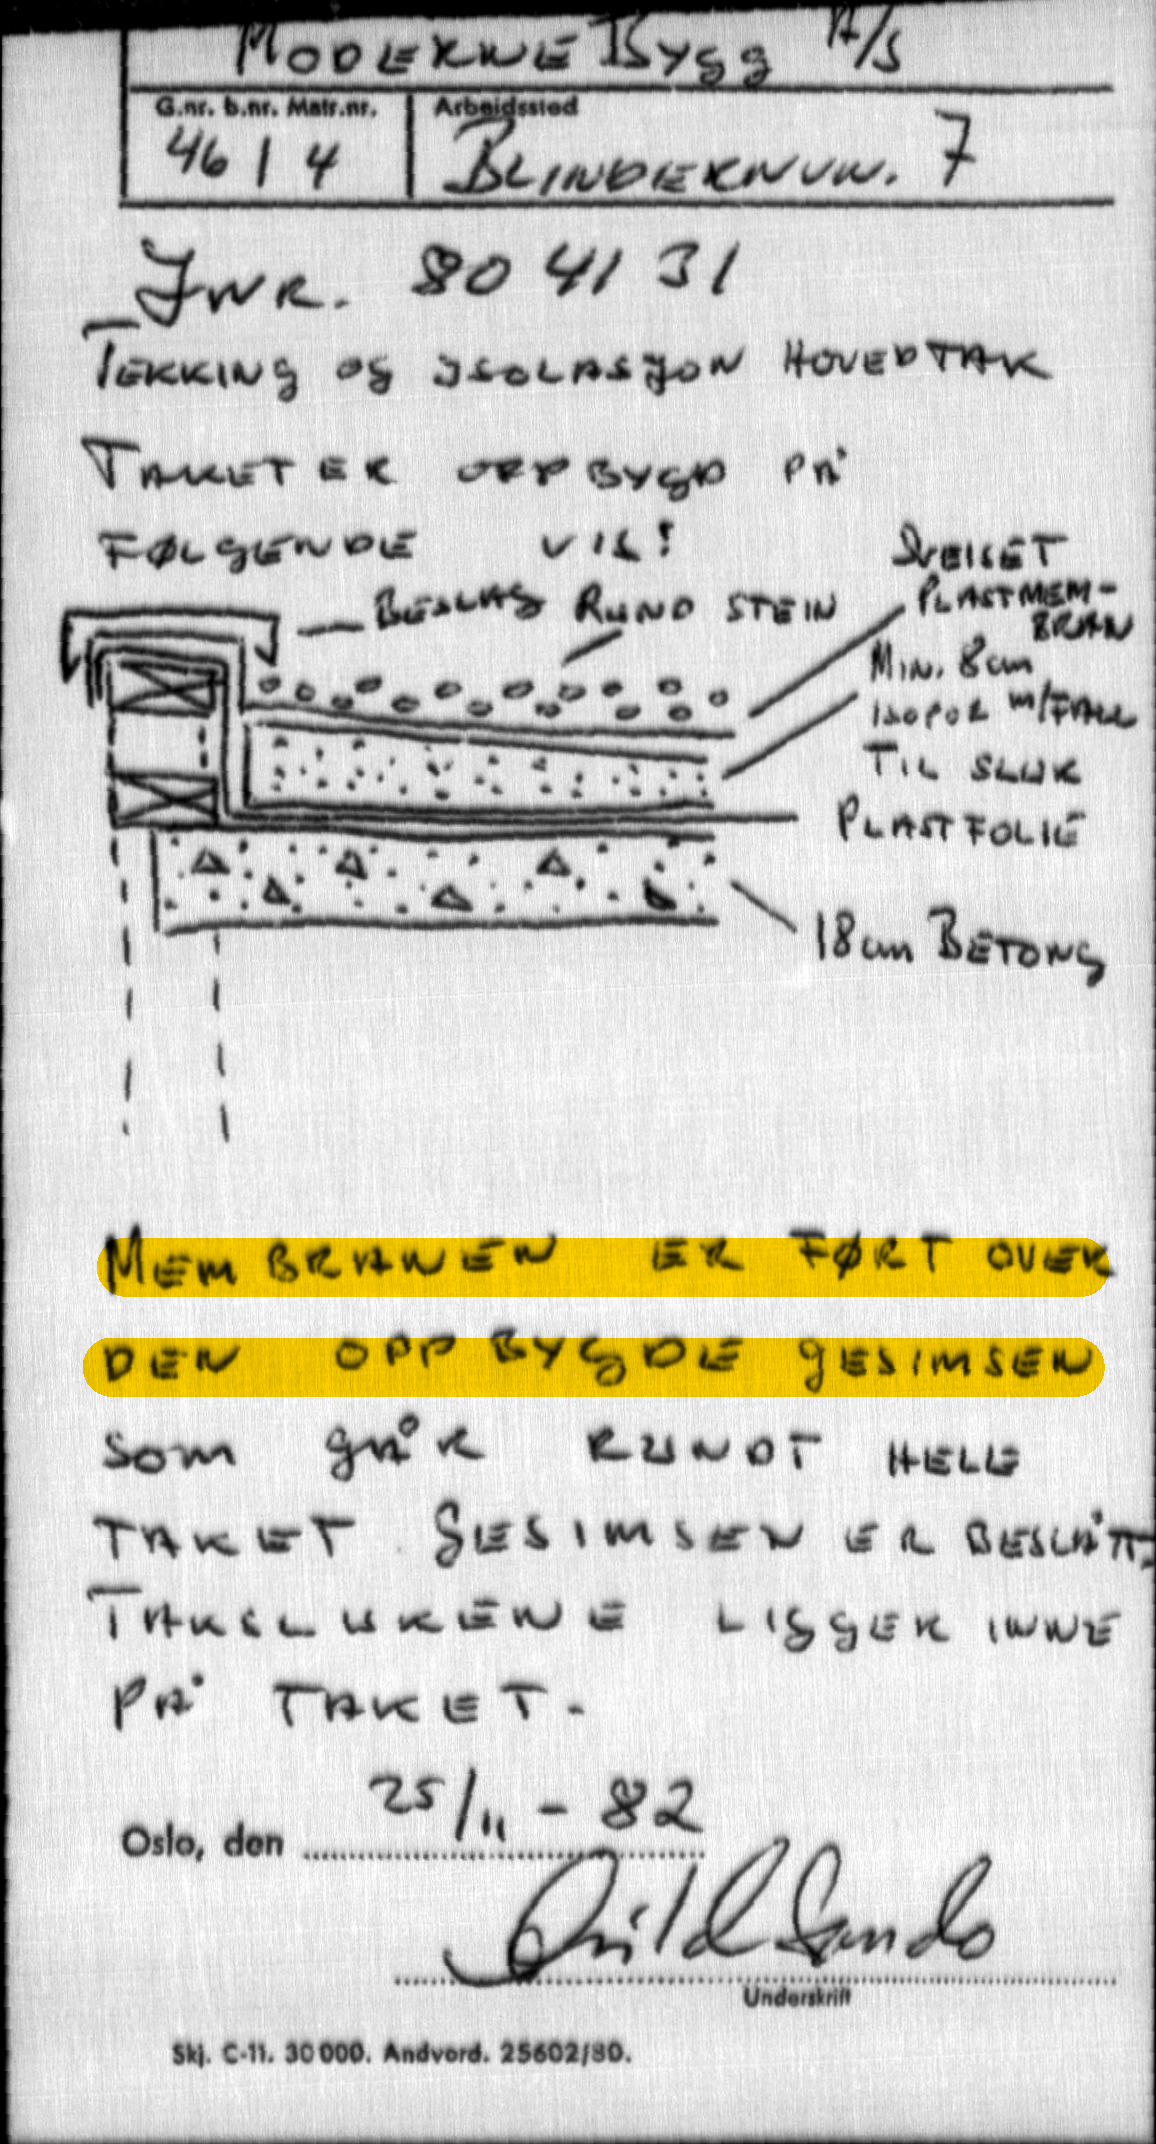 MODERNE BYGG A/S
G.nr. b.nr. Matr.nr. Arbeidssted
46 | 4 BLINDERNVN. 7
JNR. 804131
TEKKING OG ISOLASJON HOVEDTAK
TAKET ER OPPBYGD PÅ
FØLGENDE VIS:
SVEISET
BESLAG RUND STEIN PLASTMEM-
BRAN
MIN. 8cm
ISOPOR m/FALL
TIL SLUK
PLASTFOLIE
18cm BETONG
MEMBRANEN ER FØRT OVER
DEN OPPBYGDE GESIMSEN
SOM GÅR RUNDT HELE
TAKET. GESIMSEN ER BESLÅTT.
TAKSLUKENE LIGGER INNE
PÅ TAKET.
25/11 - 82
Oslo, den
Underskrift
Skj. C-11. 30000. Andvord. 25602/80.